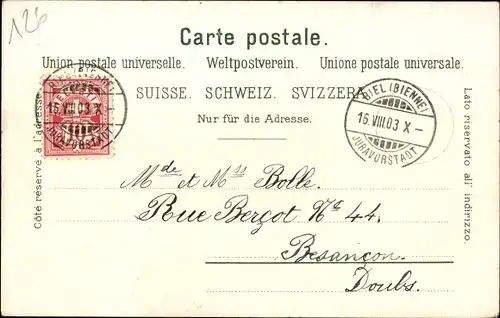 126
Carte postale.
Union postale universelle. Weltpostverein. Unione postale universale.
SUISSE. SCHWEIZ. SVIZZERA.
Nur für die Adresse.
Côté réservé à l'adresse.
Lato riservato all' indirizzo.
BIEL (BIENNE)
16.VIII.03 X
JURAVORSTADT
BIEL (BIENNE)
16.VIII.03 X –
JURAVORSTADT
Mde et Mss Bolle.
Rue Bergot No 44.
Besançon.
Doubs.